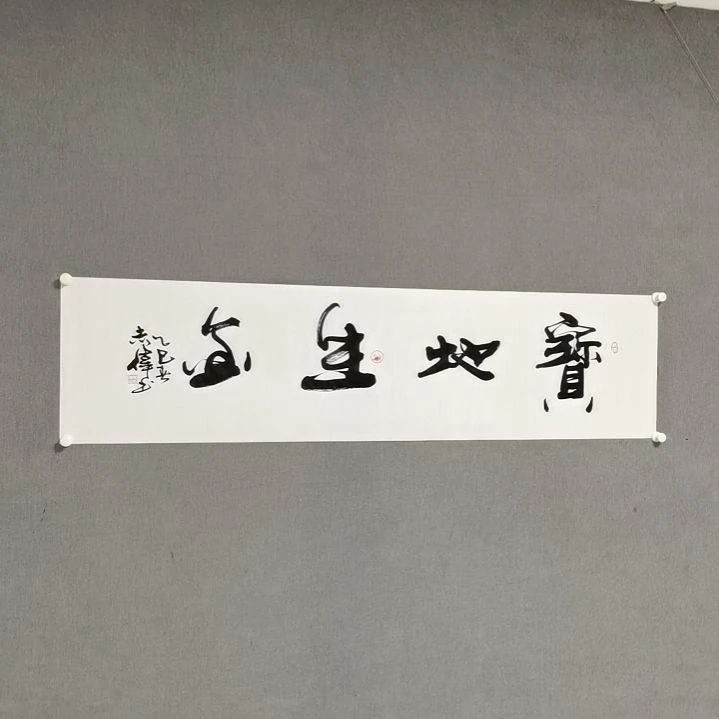 寶地生金
乙巳春
志偉书